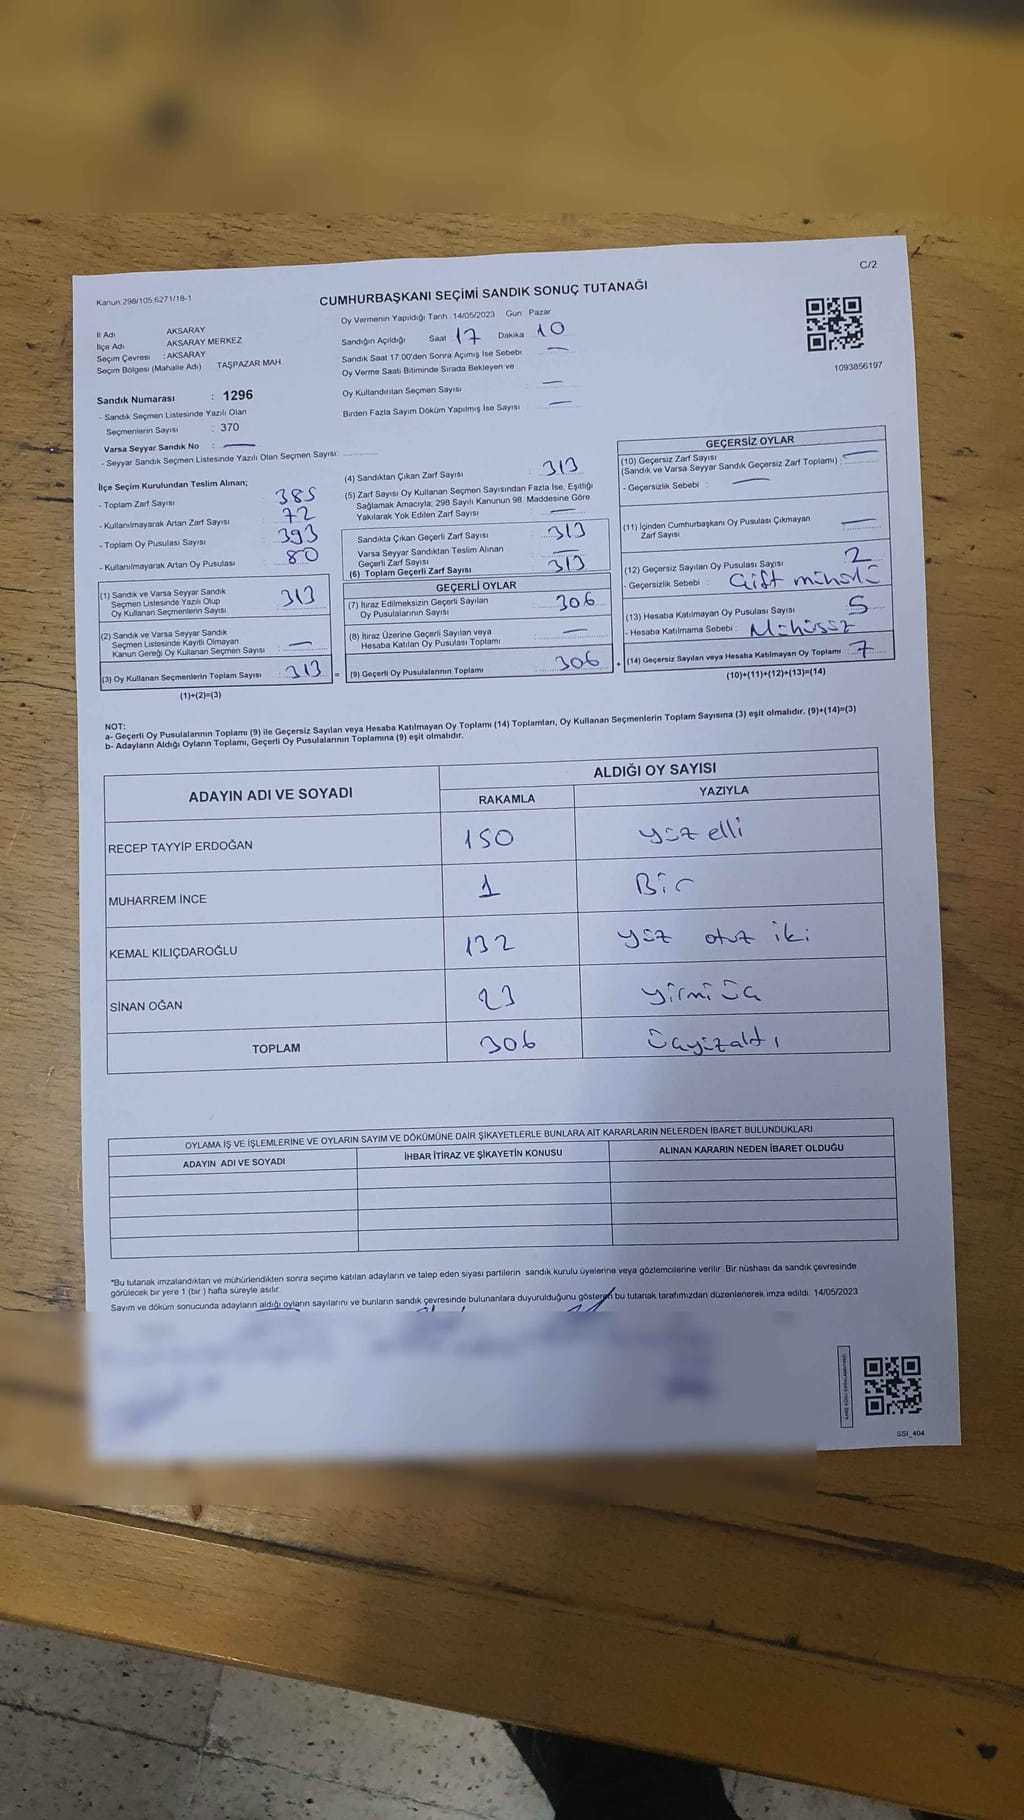 C/2
Kanun:298/105;6271/18-1
CUMHURBAŞKANI SEÇİMİ SANDIK SONUÇ TUTANAĞI
İl Adı AKSARAY
İlçe Adı AKSARAY MERKEZ
Seçim Çevresi : AKSARAY
Seçim Bölgesi (Mahalle Adı) TAŞPAZAR MAH
Oy Vermenin Yapıldığı Tarih : 14/05/2023 Gün Pazar
Sandığın Açıldığı Saat 17 Dakika 10
Sandık Saat 17:00'den Sonra Açımış İse Sebebi —
Oy Verme Saati Bitiminde Sırada Bekleyen ve
Oy Kullandırılan Seçmen Sayısı —
Birden Fazla Sayım Döküm Yapılmış İse Sayısı —
1093856197
Sandık Numarası : 1296
- Sandık Seçmen Listesinde Yazılı Olan
Seçmenlerin Sayısı : 370
Varsa Seyyar Sandık No : —
- Seyyar Sandık Seçmen Listesinde Yazılı Olan Seçmen Sayısı:
İlçe Seçim Kurulundan Teslim Alınan;
- Toplam Zarf Sayısı : 385
- Kullanılmayarak Artan Zarf Sayısı : 72
- Toplam Oy Pusulası Sayısı : 393
- Kullanılmayarak Artan Oy Pusulası : 80
(1) Sandık ve Varsa Seyyar Sandık
Seçmen Listesinde Yazılı Olup
Oy Kullanan Seçmenlerin Sayısı : 313
(2) Sandık ve Varsa Seyyar Sandık
Seçmen Listesinde Kayıtlı Olmayan
Kanun Gereği Oy Kullanan Seçmen Sayısı : —
(3) Oy Kullanan Seçmenlerin Toplam Sayısı : 313
(1)+(2)=(3)
(4) Sandıktan Çıkan Zarf Sayısı : 313
(5) Zarf Sayısı Oy Kullanan Seçmen Sayısından Fazla İse, Eşitliği
Sağlamak Amacıyla; 298 Sayılı Kanunun 98. Maddesine Göre
Yakılarak Yok Edilen Zarf Sayısı : —
Sandıkta Çıkan Geçerli Zarf Sayısı : 313
Varsa Seyyar Sandıktan Teslim Alınan
Geçerli Zarf Sayısı : —
(6) Toplam Geçerli Zarf Sayısı : 313
GEÇERLİ OYLAR
(7) İtiraz Edilmeksizin Geçerli Sayılan
Oy Pusulalarının Sayısı : 306
(8) İtiraz Üzerine Geçerli Sayılan veya
Hesaba Katılan Oy Pusulası Toplamı : —
= (9) Geçerli Oy Pusulalarının Toplamı : 306
GEÇERSİZ OYLAR
(10) Geçersiz Zarf Sayısı
(Sandık ve Varsa Seyyar Sandık Geçersiz Zarf Toplamı) : —
- Geçersizlik Sebebi : —
(11) İçinden Cumhurbaşkanı Oy Pusulası Çıkmayan
Zarf Sayısı : —
(12) Geçersiz Sayılan Oy Pusulası Sayısı : 2
- Geçersizlik Sebebi : Çift mühür
(13) Hesaba Katılmayan Oy Pusulası Sayısı : 5
- Hesaba Katılmama Sebebi : Mühürsüz
+ (14) Geçersiz Sayılan veya Hesaba Katılmayan Oy Toplamı : 7
(10)+(11)+(12)+(13)=(14)
NOT:
a- Geçerli Oy Pusulalarının Toplamı (9) ile Geçersiz Sayılan veya Hesaba Katılmayan Oy Toplamı (14) Toplamları, Oy Kullanan Seçmenlerin Toplam Sayısına (3) eşit olmalıdır. (9)+(14)=(3)
b- Adayların Aldığı Oyların Toplamı, Geçerli Oy Pusulalarının Toplamına (9) eşit olmalıdır.
ADAYIN ADI VE SOYADI ALDIĞI OY SAYISI
RAKAMLA YAZIYLA
RECEP TAYYİP ERDOĞAN 150 yüz elli
MUHARREM İNCE 1 Bir
KEMAL KILIÇDAROĞLU 132 yüz otuz iki
SİNAN OĞAN 23 yirmi üç
TOPLAM 306 üçyüzaltı
OYLAMA İŞ VE İŞLEMLERİNE VE OYLARIN SAYIM VE DÖKÜMÜNE DAİR ŞİKAYETLERLE BUNLARA AİT KARARLARIN NELERDEN İBARET BULUNDUKLARI
ADAYIN ADI VE SOYADI İHBAR İTİRAZ VE ŞİKAYETİN KONUSU ALINAN KARARIN NEDEN İBARET OLDUĞU
*Bu tutanak imzalandıktan ve mühürlendikten sonra seçime katılan adayların ve talep eden siyasi partilerin sandık kurulu üyelerine veya gözlemcilerine verilir. Bir nüshası da sandık çevresinde
görülecek bir yere 1 (bir) hafta süreyle asılır.
Sayım ve döküm sonucunda adayların aldığı oyların sayılarını ve bunların sandık çevresinde bulunanlara duyurulduğunu gösteren bu tutanak tarafımızdan düzenlenerek imza edildi. 14/05/2023
SSI_404